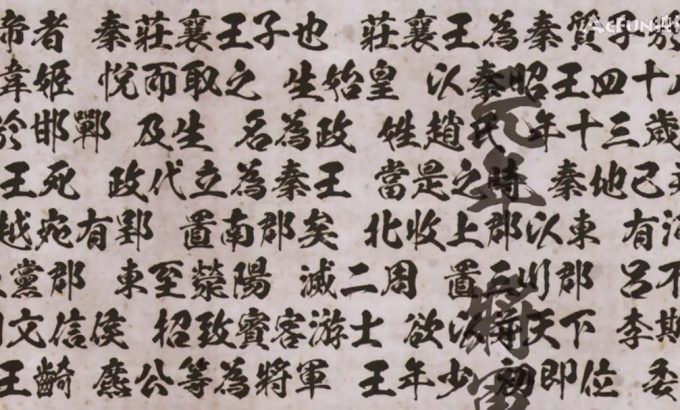 AcFUN
帝者 秦莊襄王子也 莊襄王為秦質子於
韋姬 悅而取之 生始皇 以秦昭王四十八
於邯鄲 及生 名為政 姓趙氏 年十三歲
王死 政代立為秦王 當是之時 秦他已
越宛有郢 置南郡矣 北收上郡以東 有河
黨郡 東至滎陽 滅二周 置三川郡 呂不
文信侯 招致賓客游士 欲以并天下 李斯
王齮 麃公等為將軍 王年少 初即位 委